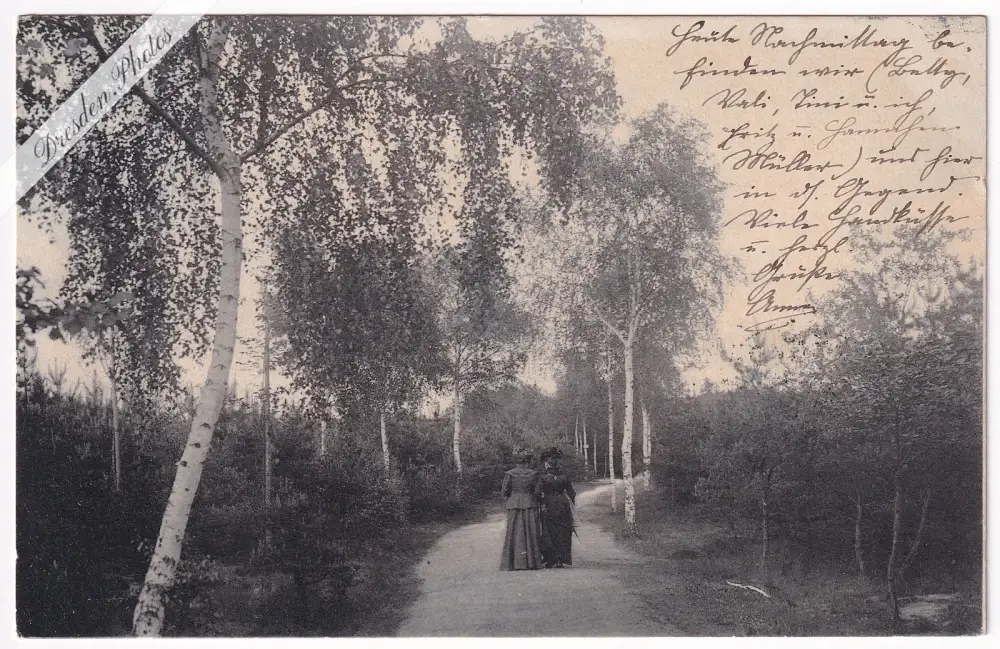 Dresden.Photos
Heute Nachmittag be-
finden wir (Betty,
Vali, Tini u. ich,
Fritz u. Hannchen
Müller) uns hier
in ds. Gegend.
Viele Handküsse
u. herzl
Grüße
Anna